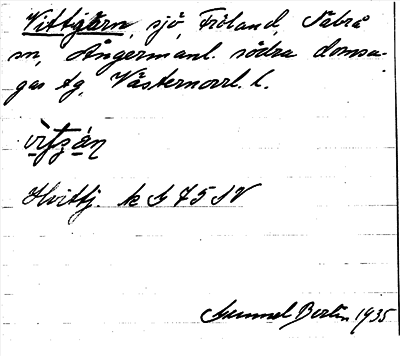 Vittjärn, sjö, Fröland, Säbrå
sn, Ångermanl. södra domsa-
gas tg, Västernorrl. l.
Hvittj. k G 75 SV
Samuel Berlin 1935